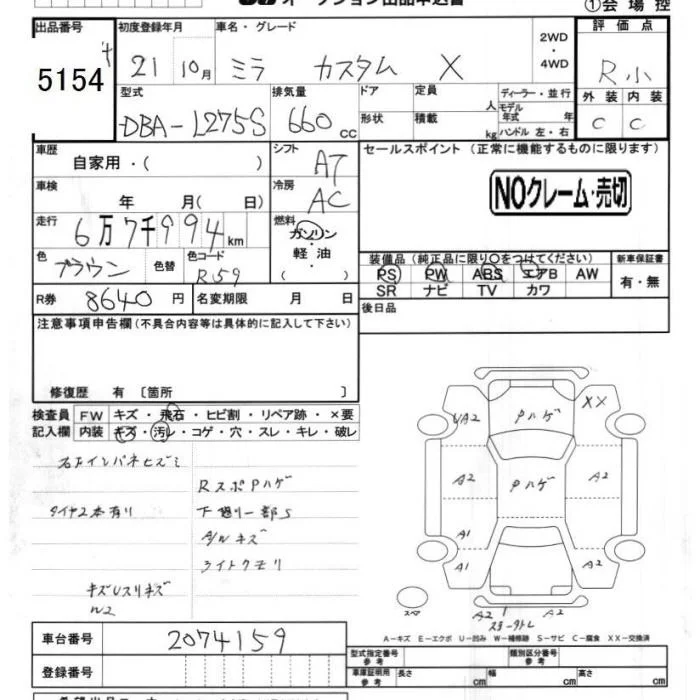 オークション出品申込書
①会場控
出品番号
5154
初度登録年月
21 10月
車名・グレード
ミラ カスタム X
2WD
・
4WD
評価点
R小
外装 内装
C C
型式
DBA-L275S
排気量
660 cc
ドア
形状
定員
人
積載
kg
ディーラー・並行
モデル
年式 年
ハンドル 左・右
車歴
自家用・( )
シフト
AT
車検
年 月( 日)
冷房
AC
走行
6万7千994km
燃料
ガソリン
・
軽油
・
( )
色
ブラウン
色替
色コード
R59
R券
8640円
名変期限 月 日
セールスポイント(正常に機能するものに限ります)
NOクレーム・売切
装備品(純正品に限り○をつけてください)
PS PW ABS エアB AW
SR ナビ TV カワ
新車保証書
有・無
後日品
注意事項申告欄(不具合内容等は具体的に記入して下さい)
修復歴 有〔箇所 〕
検査員
記入欄
FW キズ・飛石・ヒビ割・リペア跡・×要
内装 キズ・汚レ・コゲ・穴・スレ・キレ・破レ
右Fインパネヒズミ
RスポPハゲ
タイヤ2本有り
下廻り一部S
A/Wキズ
ライトクモリ
キズUスリキズ
W2
UA2
Pハゲ
XX
A2
Pハゲ
A2
A1
A1
A2
スペア
A2
A2
A-キズ E-エクボ U-凹み W-補修跡 S-サビ C-腐食 XX-交換済
車台番号
2074159
登録番号
型式指定番号
参考
類別区分番号
参考
車庫証明用
参考
長さ cm
幅 cm
高さ cm